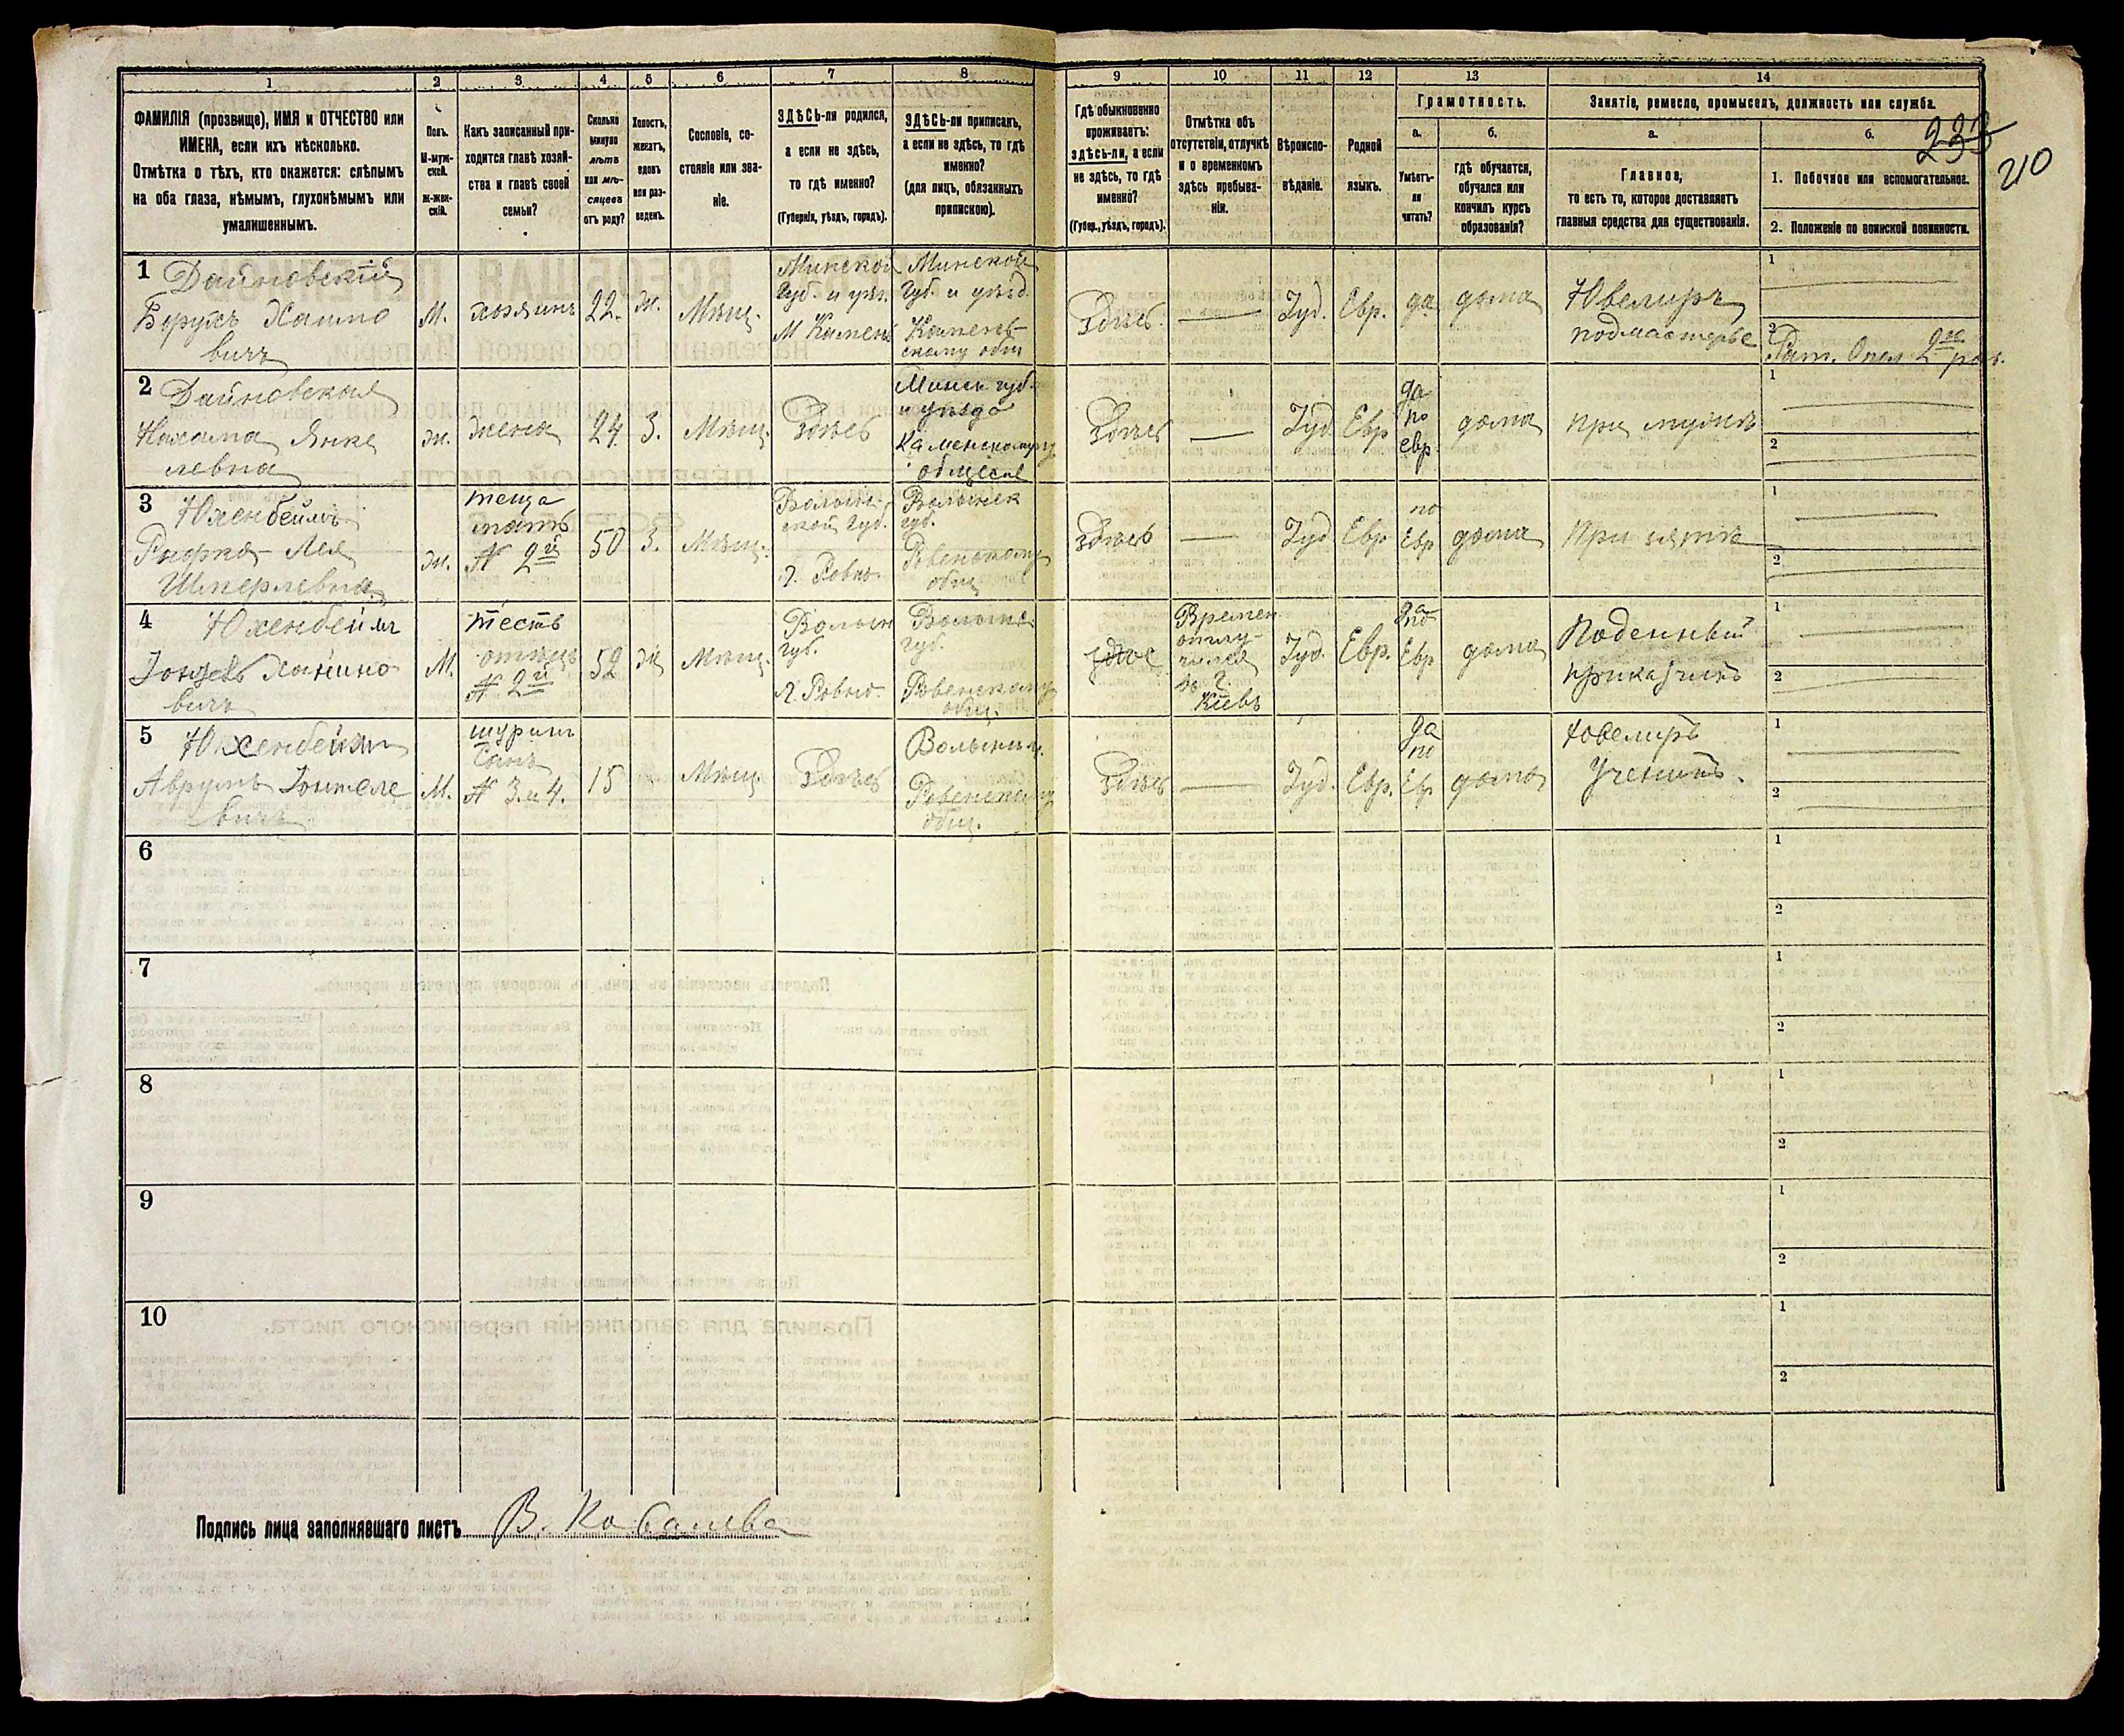 1 2 3 4 5 6 7 8 9 10 11 12 13 14
ФАМИЛІЯ (прозвище), ИМЯ и ОТЧЕСТВО или
ИМЕНА, если ихъ нѣсколько.
Отмѣтка о тѣхъ, кто окажется: слѣпымъ
на оба глаза, нѣмымъ, глухонѣмымъ или
умалишеннымъ.
Полъ.
М-муж-
ской.
Ж-жен-
скій.
Какъ записанный при-
ходится главѣ хозяй-
ства и главѣ своей
семьи?
Сколько
минуло
лѣтъ
или мѣ-
сяцевъ
отъ роду?
Холостъ,
женатъ,
вдовъ
или раз-
веденъ.
Сословіе, со-
стояніе или зва-
ніе.
ЗДѢСЬ-ли родился,
а если не здѣсь,
то гдѣ именно?
(Губернія, уѣздъ, городъ).
ЗДѢСЬ-ли приписанъ,
а если не здѣсь, то гдѣ
именно?
(для лицъ, обязанныхъ
припискою).
Гдѣ обыкновенно
проживаетъ:
здѣсь-ли, а если
не здѣсь, то гдѣ
именно?
(Губер., уѣздъ, городъ).
Отмѣтка объ
отсутствіи, отлучкѣ
и о временномъ
здѣсь пребыва-
ніи.
Вѣроиспо-
вѣданіе.
Родной
языкъ.
Грамотность.
а.
Умѣетъ-
ли
читать?
б.
гдѣ обучается,
обучался или
кончилъ курсъ
образованія?
Занятіе, ремесло, промыселъ, должность или служба.
а.
Главное,
то есть то, которое доставляетъ
главныя средства для существованія.
б.
1. Побочное или вспомогательное.
2. Положеніе по воинской повинности.
233
210
1 Дайновскій
Борухъ Хаимо
вичъ
М.
хозяинъ
22.
ж.
Мѣщ.
Минской
Губ. и уѣз.
М Камень
Минской
Губ. и уѣзд.
Камень-
скому общ
Здѣсь
Іуд.
Евр.
да
дома
Ювелиръ
подмастерье
1
2
Рат. Опол 2го раз.
2 Дайновская
Нахама Янке
левна
ж.
жена
24.
З.
Мѣщ.
Здѣсь
Минск губ
и уѣзда
Каменскому
Здѣсь
Іуд
Евр
да
по
евр
дома
при мужѣ
1
2
3 Юхенбеймъ
Рифка- Лея
Шмерлевна
ж.
теща
мать
№ 2й
50
З.
Мѣщ.
Волын-
ской Губ.
г. Ровно
Волынск
губ.
Ровенскому
общ
Здѣсь
Іуд
Евр
по
Евр
дома
При зятѣ
1
2
4 Юхенбейм
М.
тесть
отецъ
№ 2й
52
ж
Мѣщ.
Волын
губ.
г. Ровно.
губ.
Ровенскому
общ.
Времен
отлу-
чился
въ г.
Кіевъ
Іуд.
Евр.
да
по
Евр
дома
Поденный
приказчикъ
1
2
5 Юхенбейм
Аврумъ
вичъ
М.
шуринъ
Сынъ
№ 3. и 4.
15
Мѣщ.
Здѣсь
Ровенскому
общ.
Здѣсь
Іуд.
Евр.
да
по
Ев
дома
Ювелиръ
Ученикъ.
1
2
6
1
2
7
1
2
8
1
2
9
1
2
10
1
2
Подпись лица заполнявшаго листъ В. Ковалева